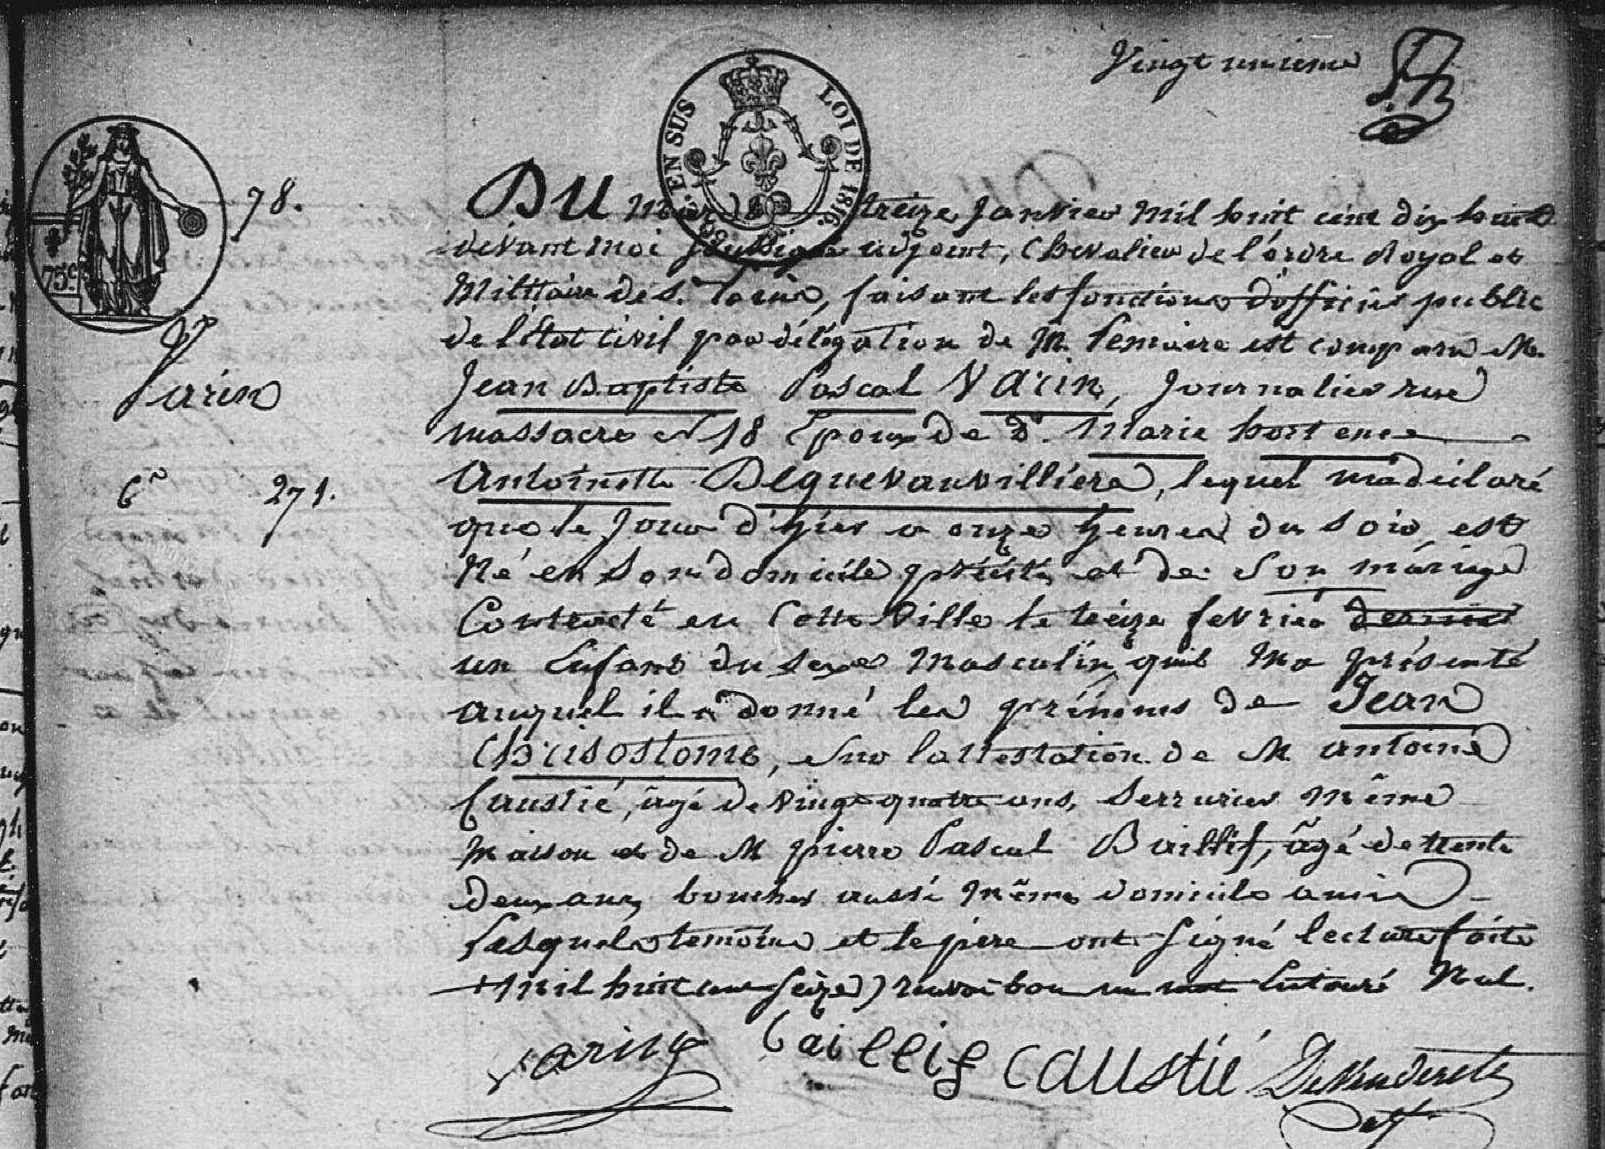 Vingt unieme
EN SUS LOI DE 1816.
75c
78.
Varin
6e 271.
DU Mardi treize Janvier Mil huit cent dix huit
devant moi Soussigné adjoint, Chevalier de l'ordre Royal et
Militaire de S. Louis, faisant les fonctions d'officier public
de l'Etat Civil par délégation de M. Lemaire est comparu M.
Jean Baptiste Pascal Varin, Journalier rue
massacre no 18 Epoux de De. Marie hortence
Antoinette Dequevauvillière, lequel m'a déclaré
que le Jour d'hier a onze heures du soir est
Né en Son domicile et de Son mariage
Contracté en Cette Ville le treize fevrier dernier
un Enfant du Sexe Masculin quil Ma présenté
auquel il a donné les prénoms de Jean
Chrisostome, sur lattestation de M. antoine
Caustié, âgé de Vingt quatre ans, Serrurier Même
Maison et de M pierre Pascal Baillif, âgé de trente
deux ans, boucher aussi Même domicile amis
Lesquels temoins et le père ont Signé lecture faite
+ Mil huit cent Seize) renvoi bon un mot Entouré Nul.
Varin Baillif Caustié